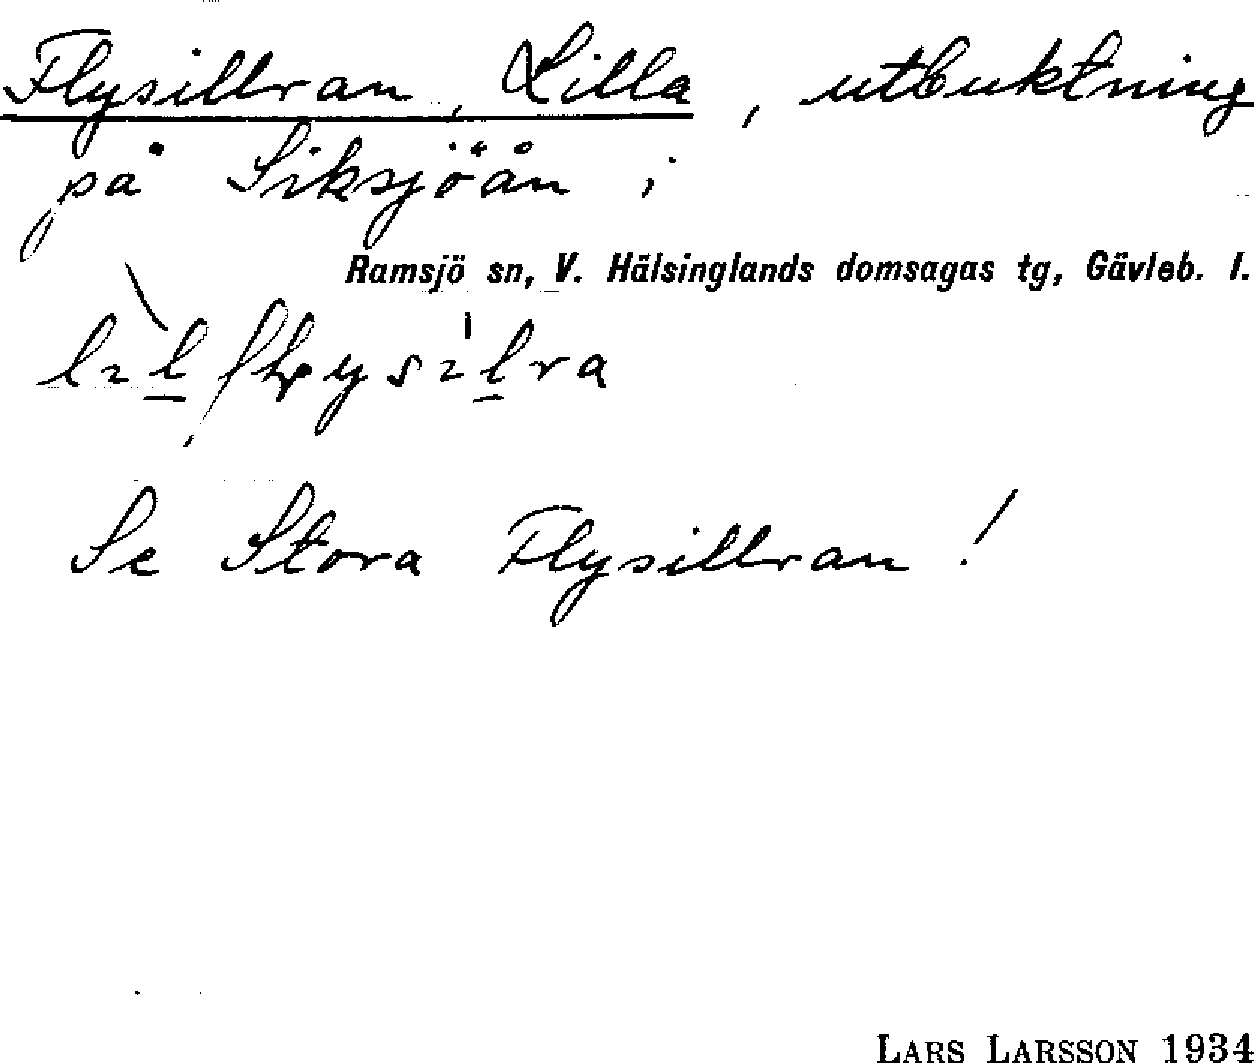 Flysillran, Lilla, utbuktning
på Siksjöån i
Ramsjö sn, V. Hälsinglands domsagas tg, Gävleb. l.
Se Stora Flysillran!
LARS LARSSON 1934